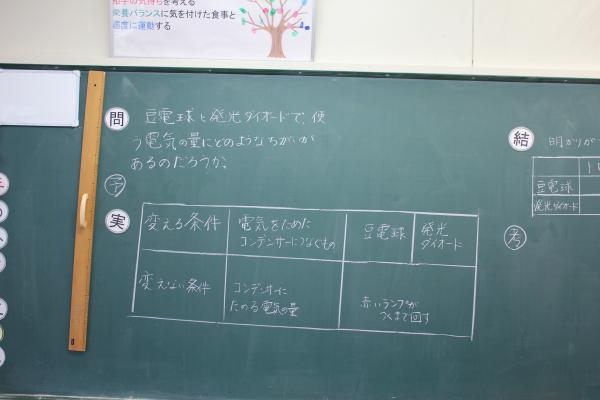 相手の気持ちを考える
栄養バランスに気を付けた食事と
適度に運動する
問 豆電球と発光ダイオードで、使
う電気の量にどのようなちがいが
あるのだろうか。
予
実
変える条件 電気をためた
コンデンサーにつなぐもの 豆電球 発光
ダイオード
変えない条件 コンデンサーに
ためる電気の量 赤いランプが
つくまで回す
結 明かりが
豆電球
発光ダイオード
考